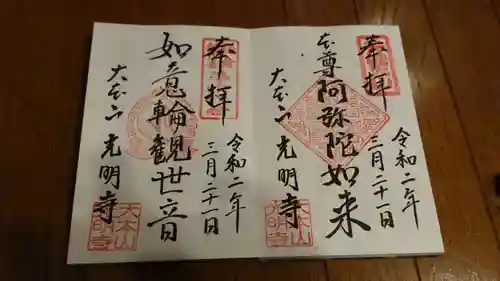 奉拝
令和二年
三月二十一日
本尊阿弥陀如来
大本山 光明寺
大本山
光明寺
奉拝
令和二年
三月二十一日
如意輪観世音
大本山 光明寺
大本山
光明寺